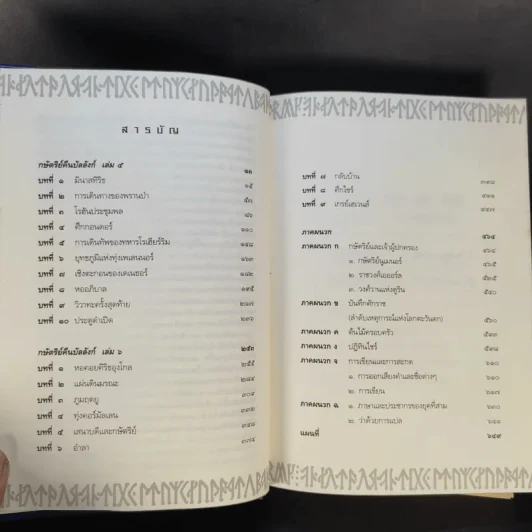 สารบัญ
กษัตริย์คืนบัลลังก์ เล่ม ๕ ๑๑
บทที่ ๑ มินาสทิริธ ๑๕
บทที่ ๒ การเดินทางของพรานป่า ๕๓
บทที่ ๓ โรฮันประชุมพล ๘๖
บทที่ ๔ ศึกกอนดอร์ ๑๑๐
บทที่ ๕ การเดินทัพของทหารโรเฮียร์ริม ๑๔๘
บทที่ ๖ ยุทธภูมิแห่งทุ่งเพเลนนอร์ ๑๖๓
บทที่ ๗ เชิงตะกอนของเดเธอร์ ๑๘๒
บทที่ ๘ หออภิบาล ๑๙๕
บทที่ ๙ วิวาทะครั้งสุดท้าย ๒๑๗
บทที่ ๑๐ ประตูดำเปิด ๒๓๖
กษัตริย์คืนบัลลังก์ เล่ม ๖ ๒๕๓
บทที่ ๑ หอคอยคีริธอุงโกล ๒๕๕
บทที่ ๒ แผ่นดินมรณะ ๒๘๔
บทที่ ๓ ภูมฤตยู ๓๐๙
บทที่ ๔ ทุ่งคอร์มัลเลน ๓๓๒
บทที่ ๕ เสนาบดีและกษัตริย์ ๓๔๘
บทที่ ๖ อำลา ๓๗๔
บทที่ ๗ กลับบ้าน ๓๙๘
บทที่ ๘ ศึกไชร์ ๔๑๑
บทที่ ๙ เกรย์เฮเวนส์ ๔๔๗
ภาคผนวก ๔๖๔
ภาคผนวก ก กษัตริย์และเจ้าผู้ปกครอง ๔๖๕
๑. กษัตริย์นูเมนอร์ ๔๖๕
๒. ราชวงศ์เอออร์ล ๕๒๕
๓. วงศ์วานแห่งดูริน ๕๔๐
ภาคผนวก ข บันทึกศักราช
(ลำดับเหตุการณ์แห่งโลกตะวันตก) ๕๖๐
ภาคผนวก ค ต้นไม้ครอบครัว ๕๙๑
ภาคผนวก ง ปฏิทินไชร์ ๕๙๘
ภาคผนวก จ การเขียนและการสะกด ๖๑๐
๑. การออกเสียงคำและชื่อต่างๆ ๖๑๐
๒. การเขียน ๖๑๗
ภาคผนวก ฉ ๑. ภาษาและประชากรของยุคที่สาม
๒. ว่าด้วยการแปล
แผนที่ ๖๔๙